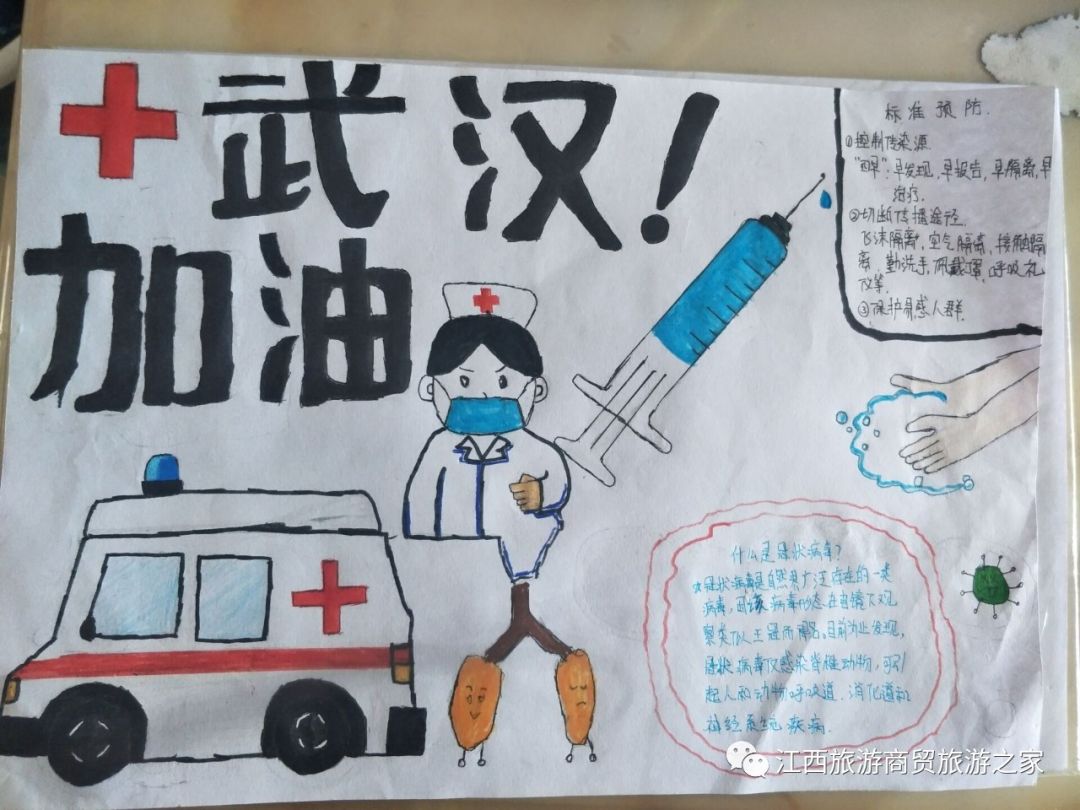 武汉!
加油
标准预防.
①控制传染源.
"四早":早发现,早报告,早隔离,早
治疗.
②切断传播途径.
飞沫隔离,空气隔离,接触隔
离.勤洗手,佩戴罩,呼吸礼
仪等.
③保护易感人群.
什么是冠状病毒?
冠状病毒是自然界广泛存在的一类
病毒,因该病毒形态在电镜下观
察类似王冠而得名.目前为止发现,
冠状病毒仅感染脊椎动物,可引
起人和动物呼吸道.消化道和
神经系统疾病.
江西旅游商贸旅游之家